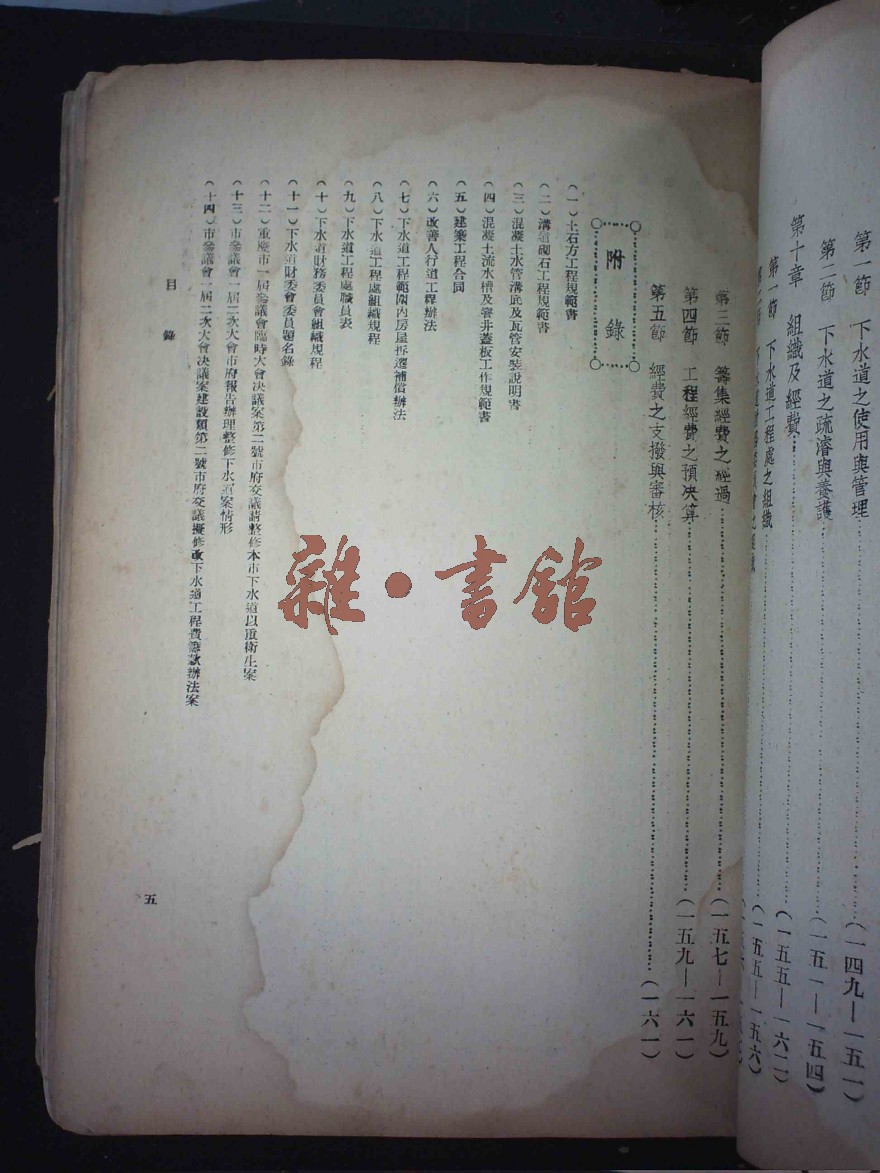 第一節 下水道之使用與管理……(一四九—一五一)
第二節 下水道之疏濬與養護……(一五一—一五四)
第十章 組織及經費……(一五五—一六二)
第一節 下水道工程處之組織……(一五五—一五六)
第三節 籌集經費之經過……(一五七—一五九)
第四節 工程經費之預決算……(一五九—一六一)
第五節 經費之支撥與審核……(一六一)
附 錄
(一)土石方工程規範書
(二)溝道砌石工程規範書
(三)混凝土水管溝底及瓦管安裝說明書
(四)混凝土流水槽及窨井蓋板工作規範書
(五)建築工程合同
(六)改善人行道工程辦法
(七)下水道工程範圍內房屋拆遷補償辦法
(八)下水道工程處組織規程
(九)下水道工程處職員表
(十)下水道財務委員會組織規程
(十一)下水道財委會委員題名錄
(十二)重慶市一屆參議會臨時大會決議案第二號市府交議請整修本市下水道以重衛生案
(十三)市參議會一屆二次大會市府報告辦理整修下水道案情形
(十四)市參議會一屆二次大會決議案建設類第二號市府交議擬修改下水道工程費籌款辦法案
目 錄
五
雜·書館